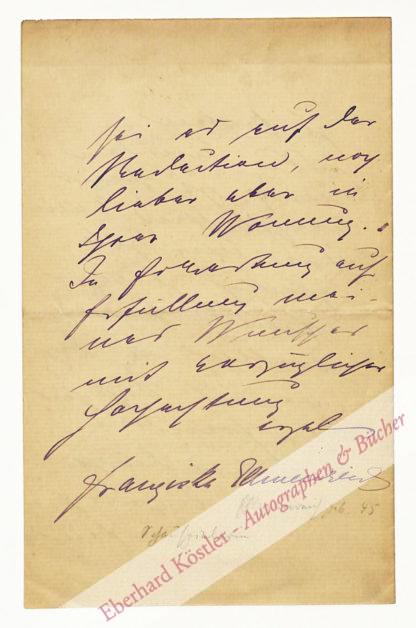 sei es auf der
Redaction, noch
lieber aber in
Ihrer Wonung.
In Erwartung auf
Erfüllung mei-
nes Wunsches
mit vorzüglicher
Hochachtung
Franziska
Schauspielerin
45
Eberhard Köstler - Autographen & Bücher